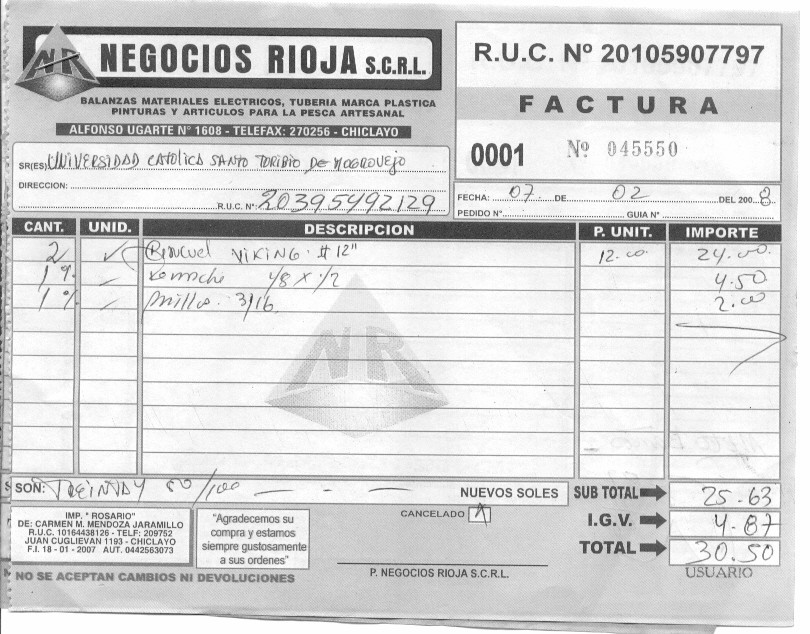 NR NEGOCIOS RIOJA S.C.R.L.
BALANZAS MATERIALES ELECTRICOS, TUBERIA MARCA PLASTICA
PINTURAS Y ARTICULOS PARA LA PESCA ARTESANAL
ALFONSO UGARTE Nº 1608 - TELEFAX: 270256 - CHICLAYO
R.U.C. Nº 20105907797
FACTURA
0001 Nº 045550
SR(ES) UNIVERSIDAD CATOLICA SANTO TORIBIO DE MOGROVEJO
DIRECCION:
R.U.C. Nº: 20395492129
FECHA: 07 DE 02 DEL 2008
PEDIDO Nº GUIA Nº
CANT. UNID. DESCRIPCION P. UNIT. IMPORTE
2 VIKING # 12" 12.00 24.00
1 % Remache 1/8 x 1/2 4.50
1 % Anillos 3/16 2.00
NR
SON: TREINTA Y 50/100 NUEVOS SOLES
SUB TOTAL 25.63
I.G.V. 4.87
TOTAL 30.50
USUARIO
CANCELADO
P. NEGOCIOS RIOJA S.C.R.L.
IMP. " ROSARIO"
DE: CARMEN M. MENDOZA JARAMILLO
R.U.C. 10164438126 - TELF: 209752
JUAN CUGLIEVAN 1193 - CHICLAYO
F.I. 18 - 01 - 2007 AUT. 0442563073
"Agradecemos su
compra y estamos
siempre gustosamente
a sus ordenes"
NO SE ACEPTAN CAMBIOS NI DEVOLUCIONES